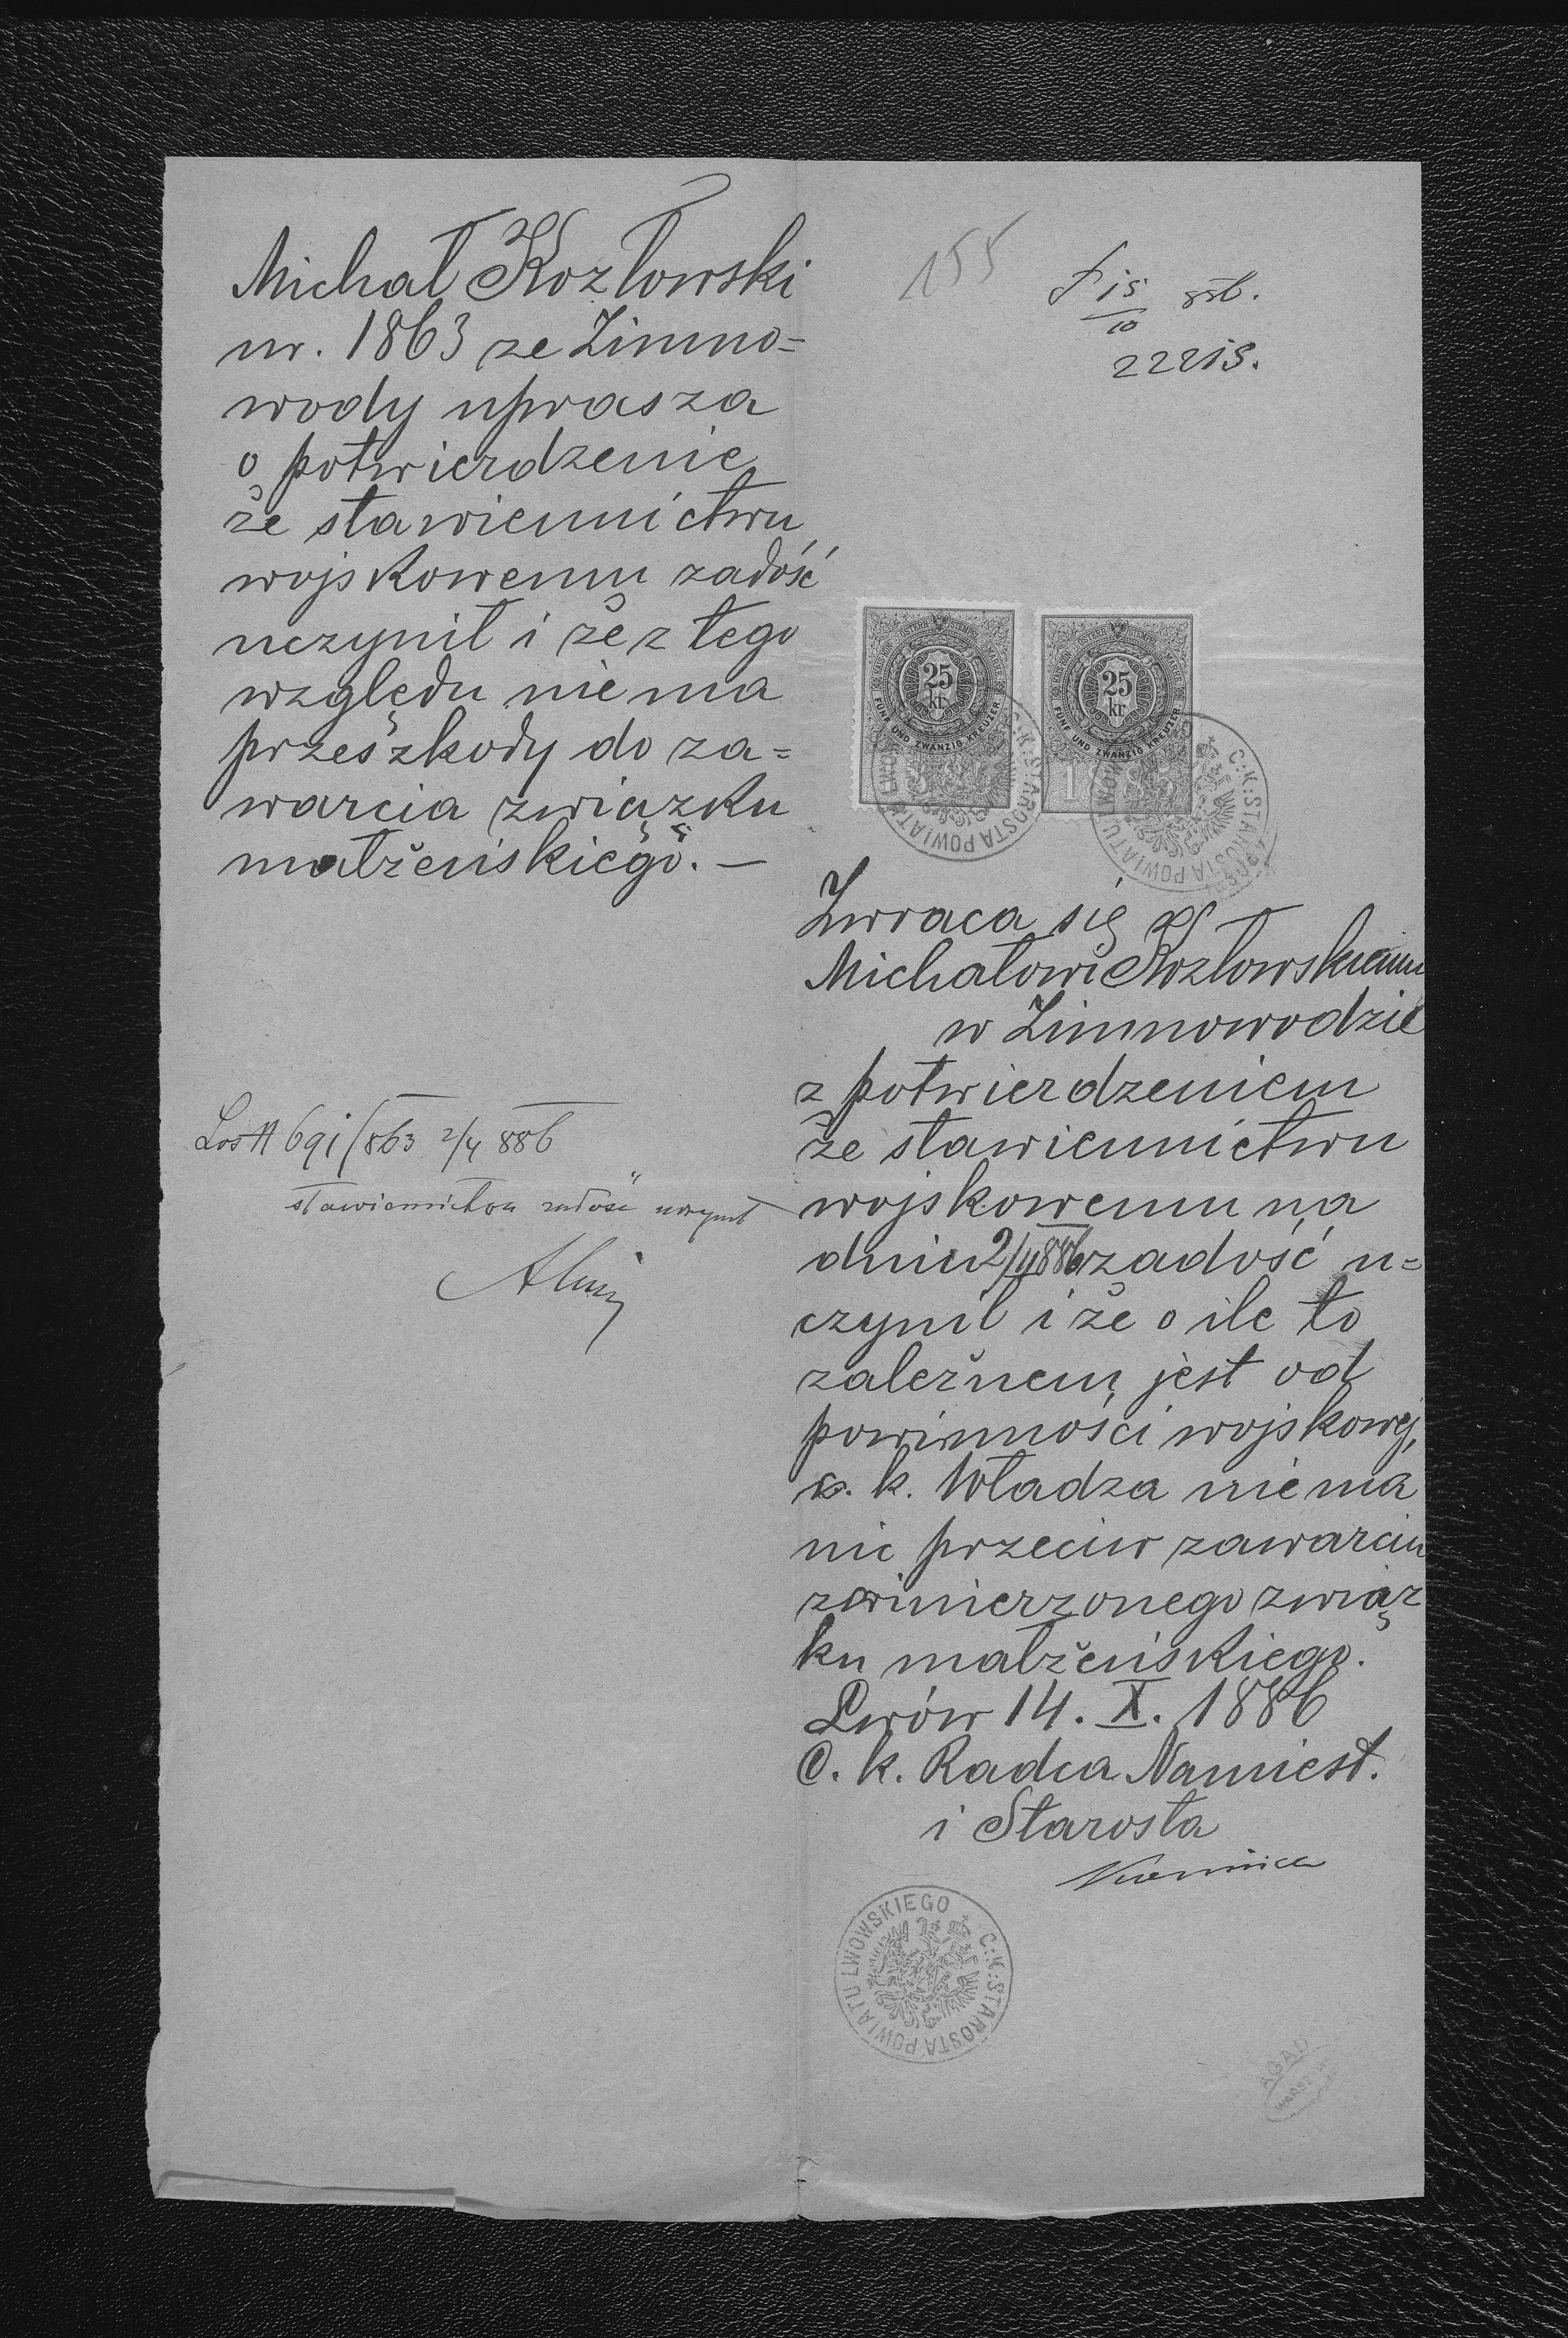 Michał Kozłowski
ur. 1863 ze Zimno=
wody uprasza
o potwierdzenie
że stawiennictwu
wojskowemu zadość
uczynił i że z tego
względu nie ma
przeszkody do za=
warcia związku
małżeńskiego. —
Los II 691/863 2/4 886
stawiennictwu zadość uczynił
155
15
10
22215.
25
kr
FÜNF UND ZWANZIG KREUZER
25
kr
FÜNF UND ZWANZIG KREUZER
1885
C:K:STAROSTA POWIATU LWOWSKIEGO
C:K:STAROSTA POWIATU LWOWSKIEGO
Zwraca się
Michałowi Kozłowskiemu
w Zimnowodzie
z potwierdzeniem
że stawiennictwu
wojskowemu na
dniu 2/4 886 zadość u=
czynił i że o ile to
zależnem jest od
powinności wojskowej,
c. k. Władza nie ma
nic przeciw zawarciu
zamierzonego związ
ku małżeńskiego.
Lwów 14. X. 1886
C. k. Radca Namiest.
i Starosta
C:K:STAROSTA POWIATU LWOWSKIEGO
AGAD